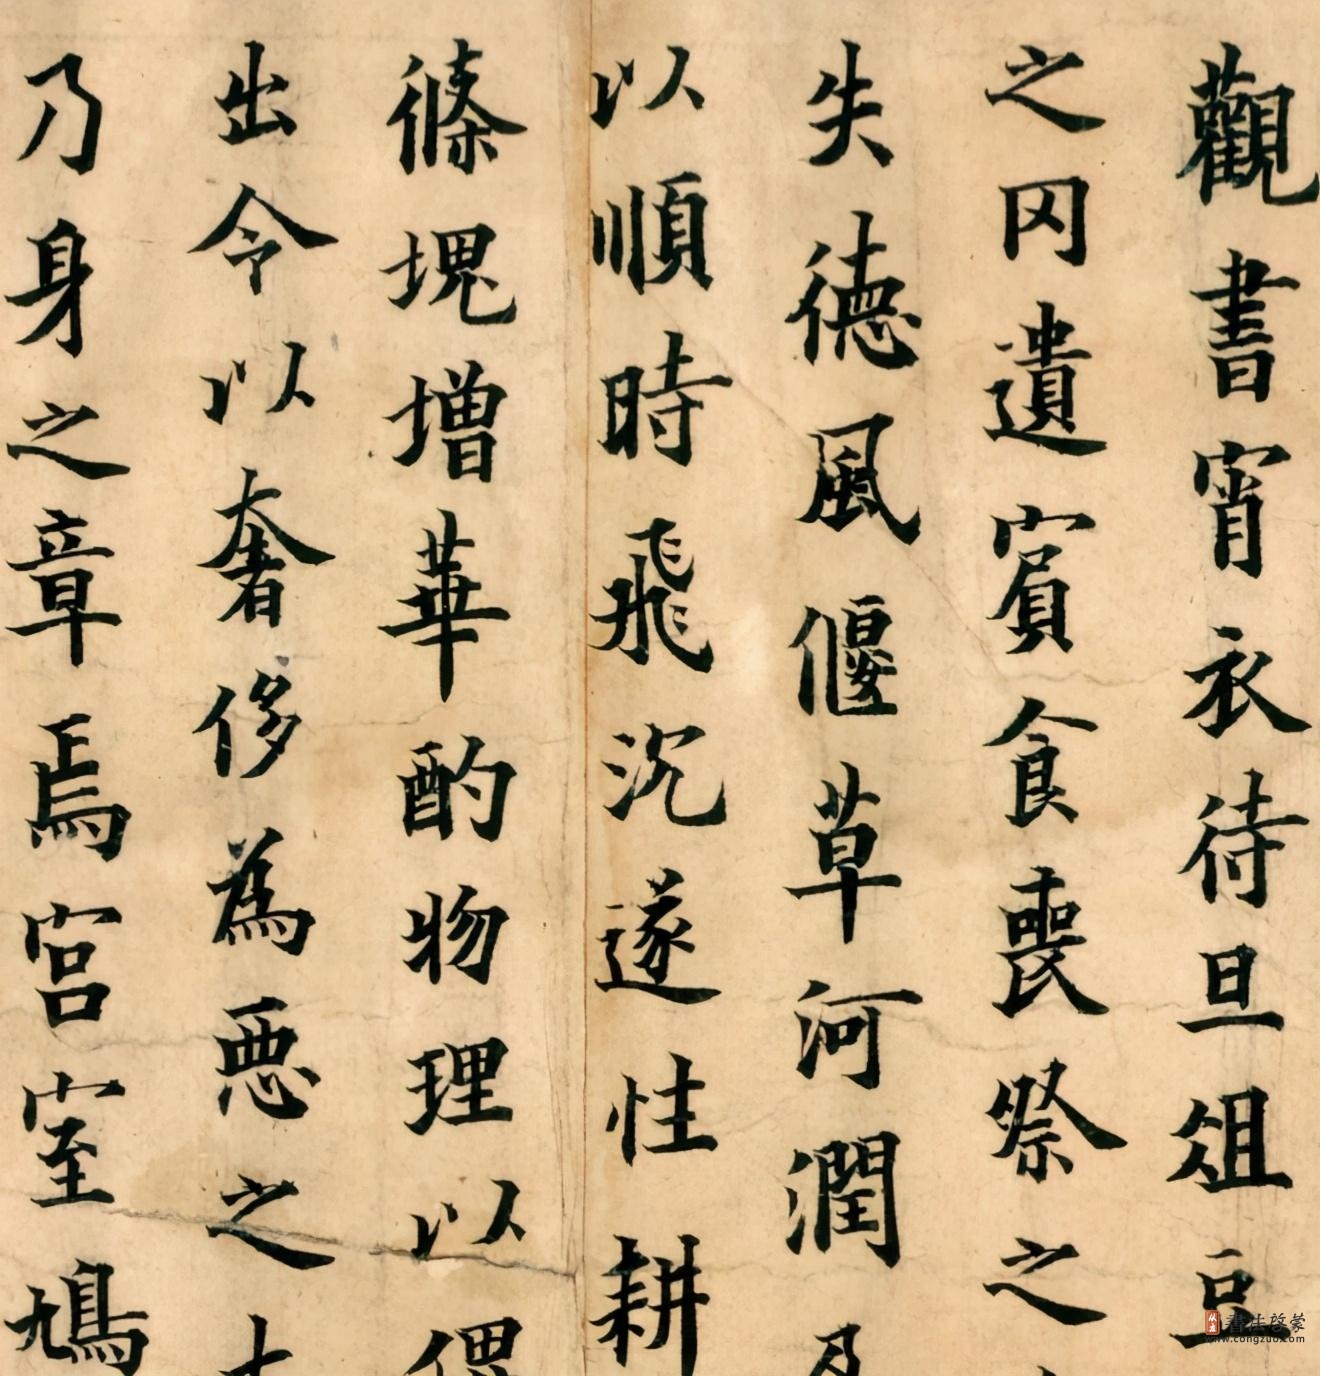 觀書宵衣待旦俎豆
之罔遺賓食喪祭之
失德風偃草河潤
以順時飛沉遂性耕
絛塊增華酌物理以
出令以奢侈為惡之
乃身之章焉宮室鳩
書法啓蒙
www.congzuo.com